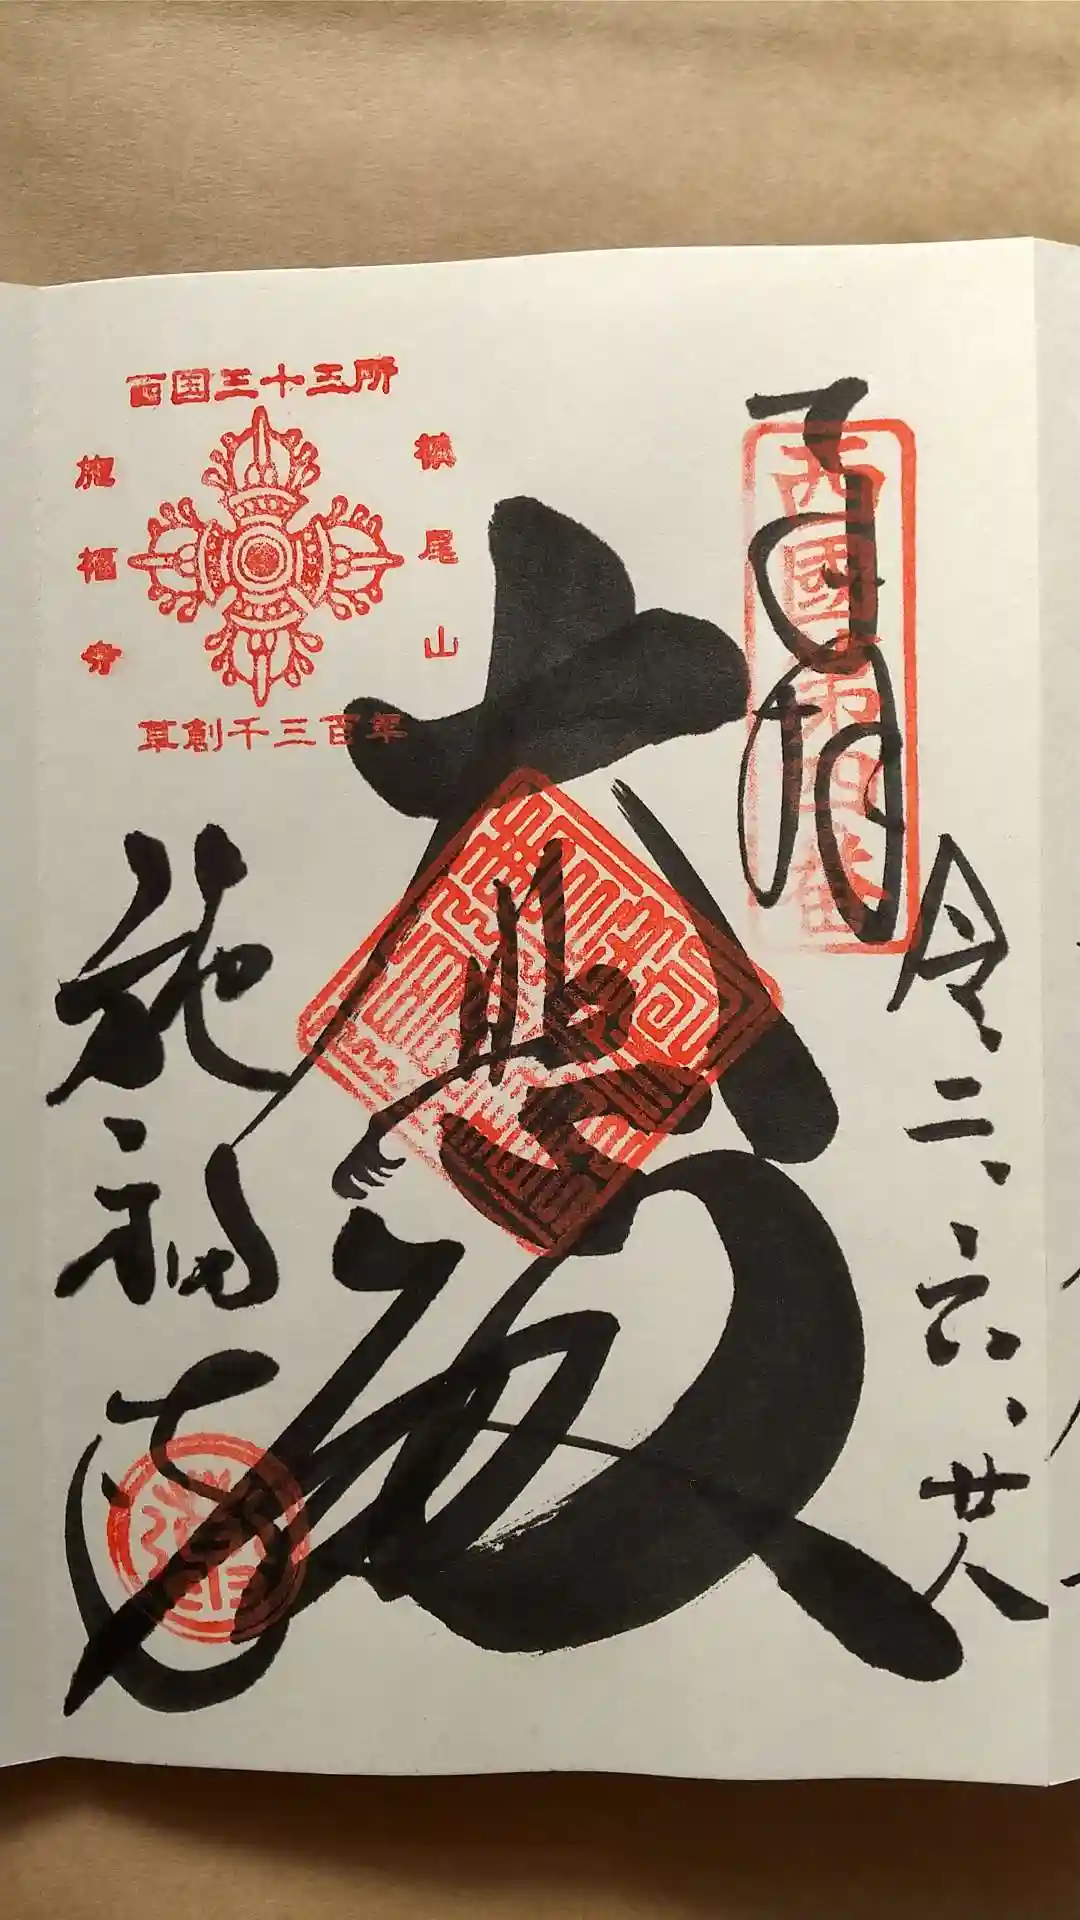 奉拝
西國第四番
令二、六、廿八
大悲殿
西国三十三所
槇尾山
施福寺
草創千三百年
施福寺